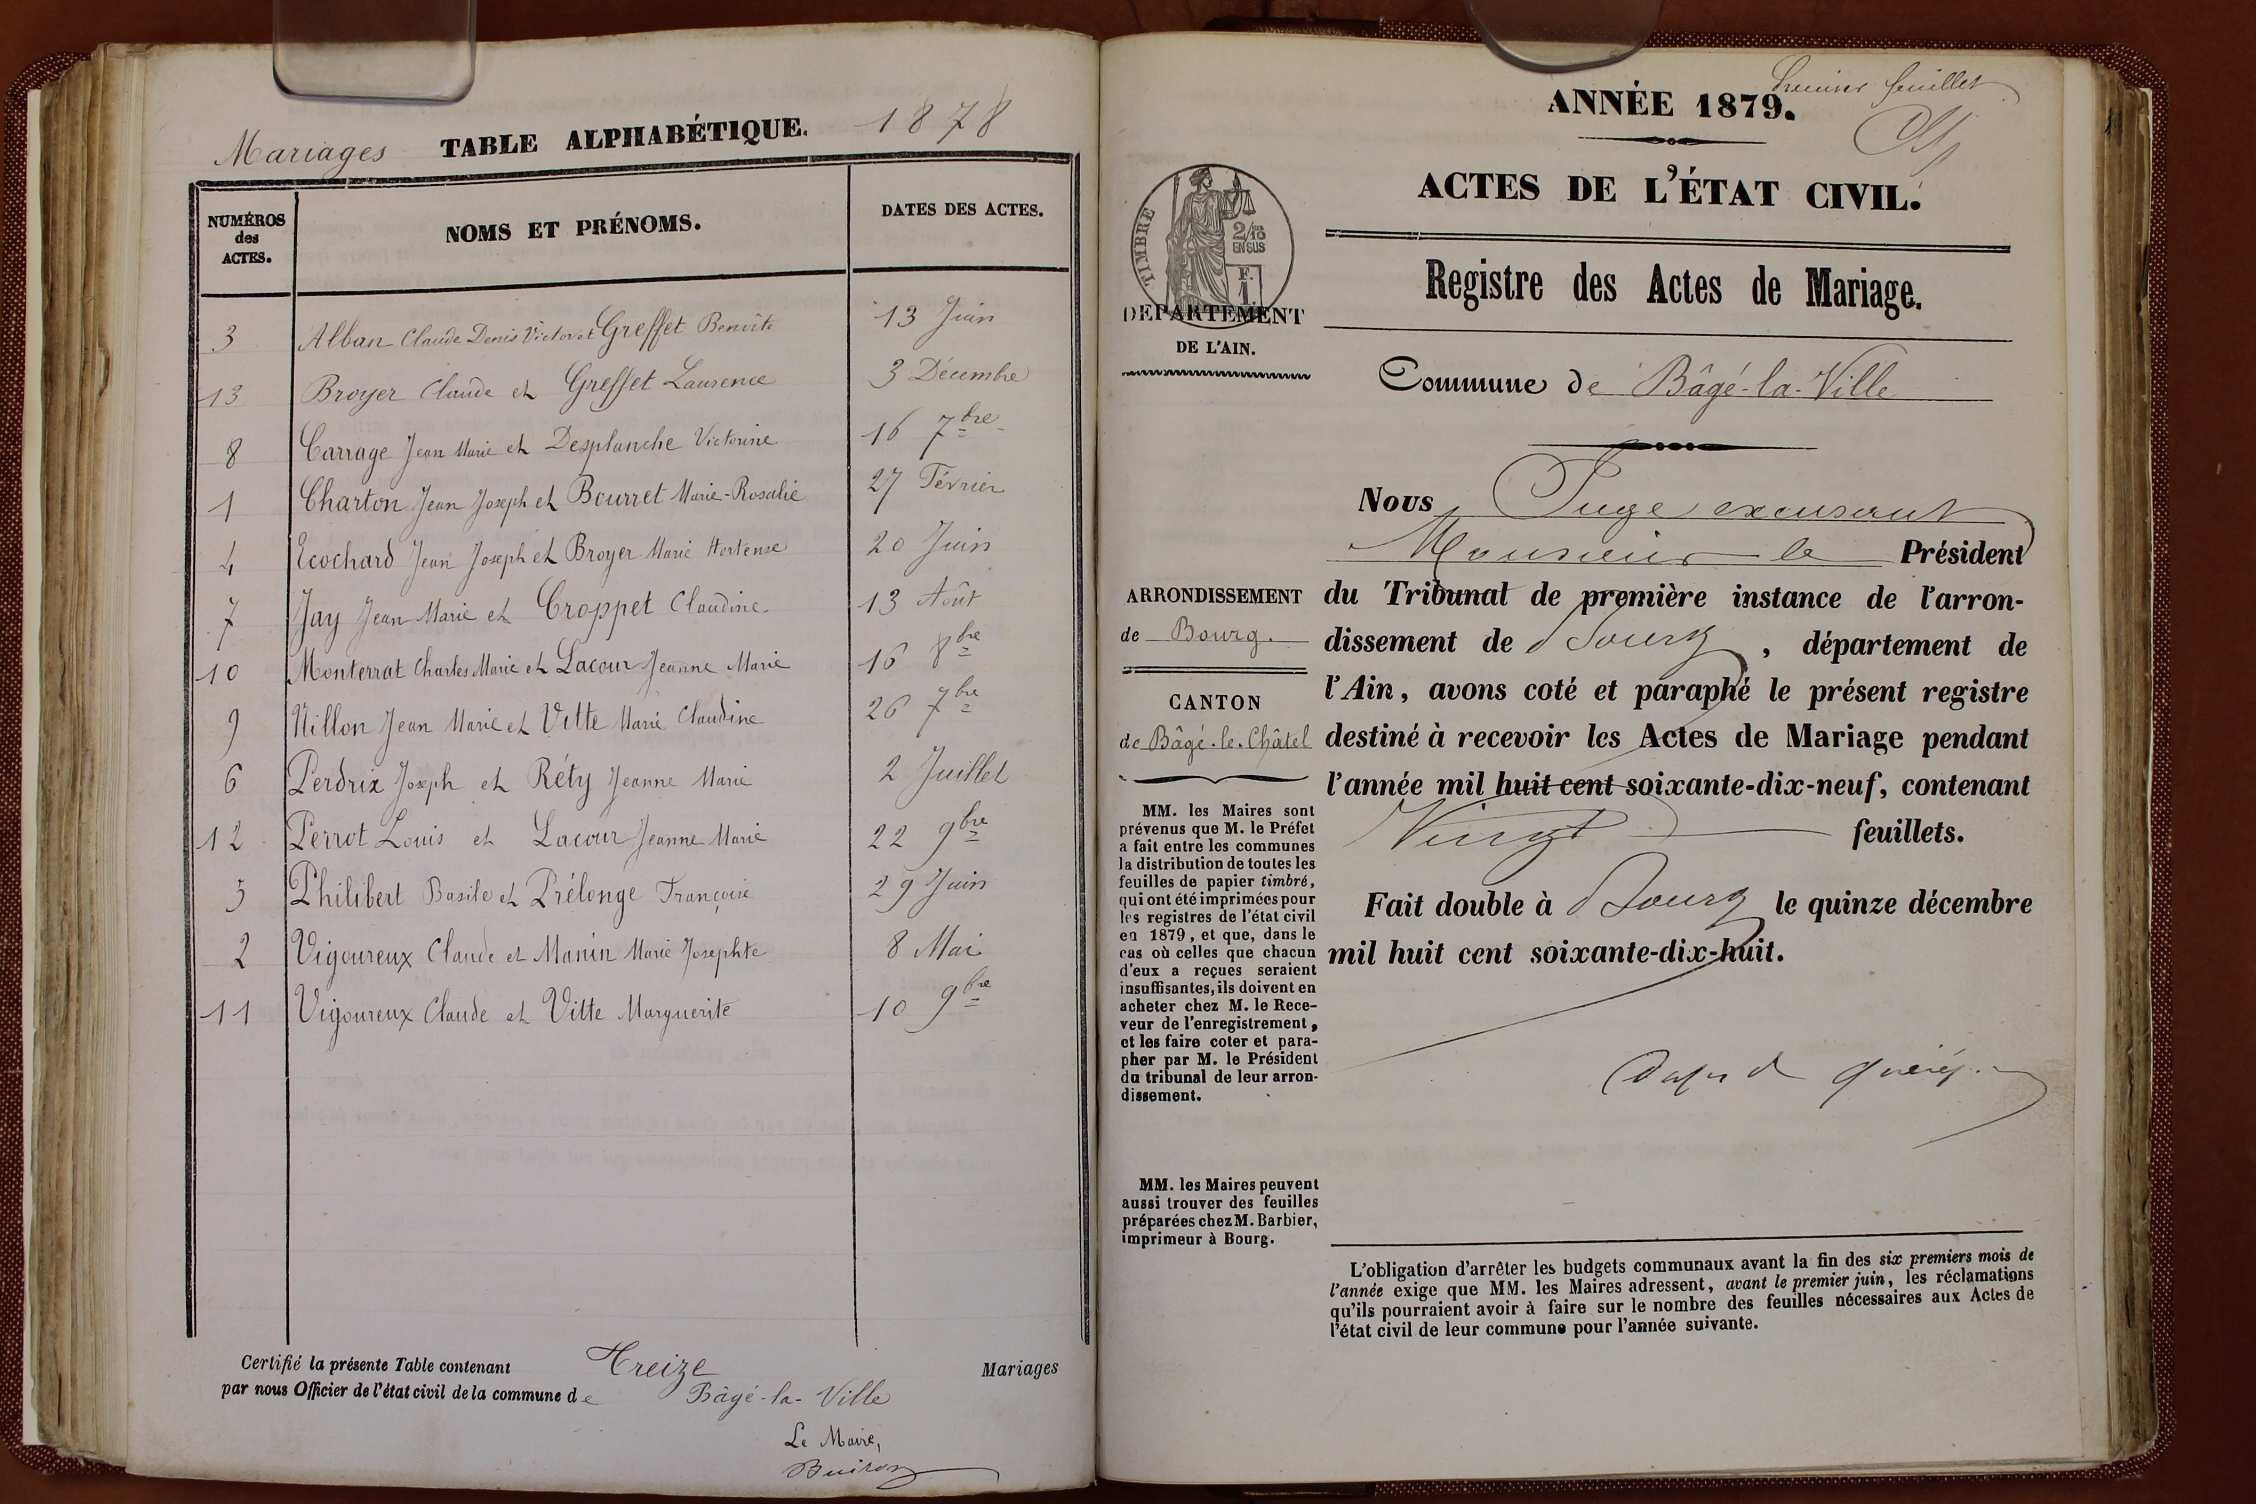 Mariages TABLE ALPHABÉTIQUE. 1878
NUMÉROS
des
ACTES.
NOMS ET PRÉNOMS.
DATES DES ACTES.
3 Alban Claude Denis Victor et Greffet Benoîte 13 Juin
13 Broyer Claude et Greffet Laurence 3 Décembre
8 Carrage Jean Marie et Desplanche Victorine 16 7bre
1 Charton Jean Joseph et Bourret Marie-Rosalie 27 Février
4 Ecochard Jean Joseph et Broyer Marie Hortense 20 Juin
7 Jay Jean Marie et Croppet Claudine 13 Août
10 Monterrat Charles Marie et Lacour Jeanne Marie 16 8bre
9 Nillon Jean Marie et Vitte Marie Claudine 26 7bre
6 Perdrix Joseph et Réty Jeanne Marie 2 Juillet
12 Perrot Louis et Lacour Jeanne Marie 22 9bre
5 Philibert Basile et Prélonge Françoise 29 Juin
2 Vigoureux Claude et Manin Marie Josephte 8 Mai
11 Vigoureux Claude et Vitte Marguerite 10 9bre
Certifié la présente Table contenant Treize Mariages
par nous Officier de l'état civil de la commune de Bâgé-la-Ville
Le Maire,
Buiron
Premier feuillet
ANNÉE 1879.
ACTES DE L'ÉTAT CIVIL.
TIMBRE
2/10
EN SUS
F.
1.
DEPARTEMENT
DE L'AIN.
Registre des Actes de Mariage.
Commune de Bâgé-la-Ville
ARRONDISSEMENT
de Bourg.
CANTON
de Bâgé-le-Châtel
MM. les Maires sont
prévenus que M. le Préfet
a fait entre les communes
la distribution de toutes les
feuilles de papier timbré,
qui ont été imprimées pour
les registres de l'état civil
en 1879, et que, dans le
cas où celles que chacun
d'eux a reçues seraient
insuffisantes, ils doivent en
acheter chez M. le Rece-
veur de l'enregistrement,
et les faire coter et para-
pher par M. le Président
du tribunal de leur arron-
dissement.
MM. les Maires peuvent
aussi trouver des feuilles
préparées chez M. Barbier,
imprimeur à Bourg.
Nous Juge excusant
Monsieur le Président
du Tribunal de première instance de l'arron-
dissement de Bourg, département de
l'Ain, avons coté et paraphé le présent registre
destiné à recevoir les Actes de Mariage pendant
l'année mil huit cent soixante-dix-neuf, contenant
Vingt feuillets.
Fait double à Bourg le quinze décembre
mil huit cent soixante-dix-huit.
L'obligation d'arrêter les budgets communaux avant la fin des six premiers mois de
l'année exige que MM. les Maires adressent, avant le premier juin, les réclamations
qu'ils pourraient avoir à faire sur le nombre des feuilles nécessaires aux Actes de
l'état civil de leur commune pour l'année suivante.